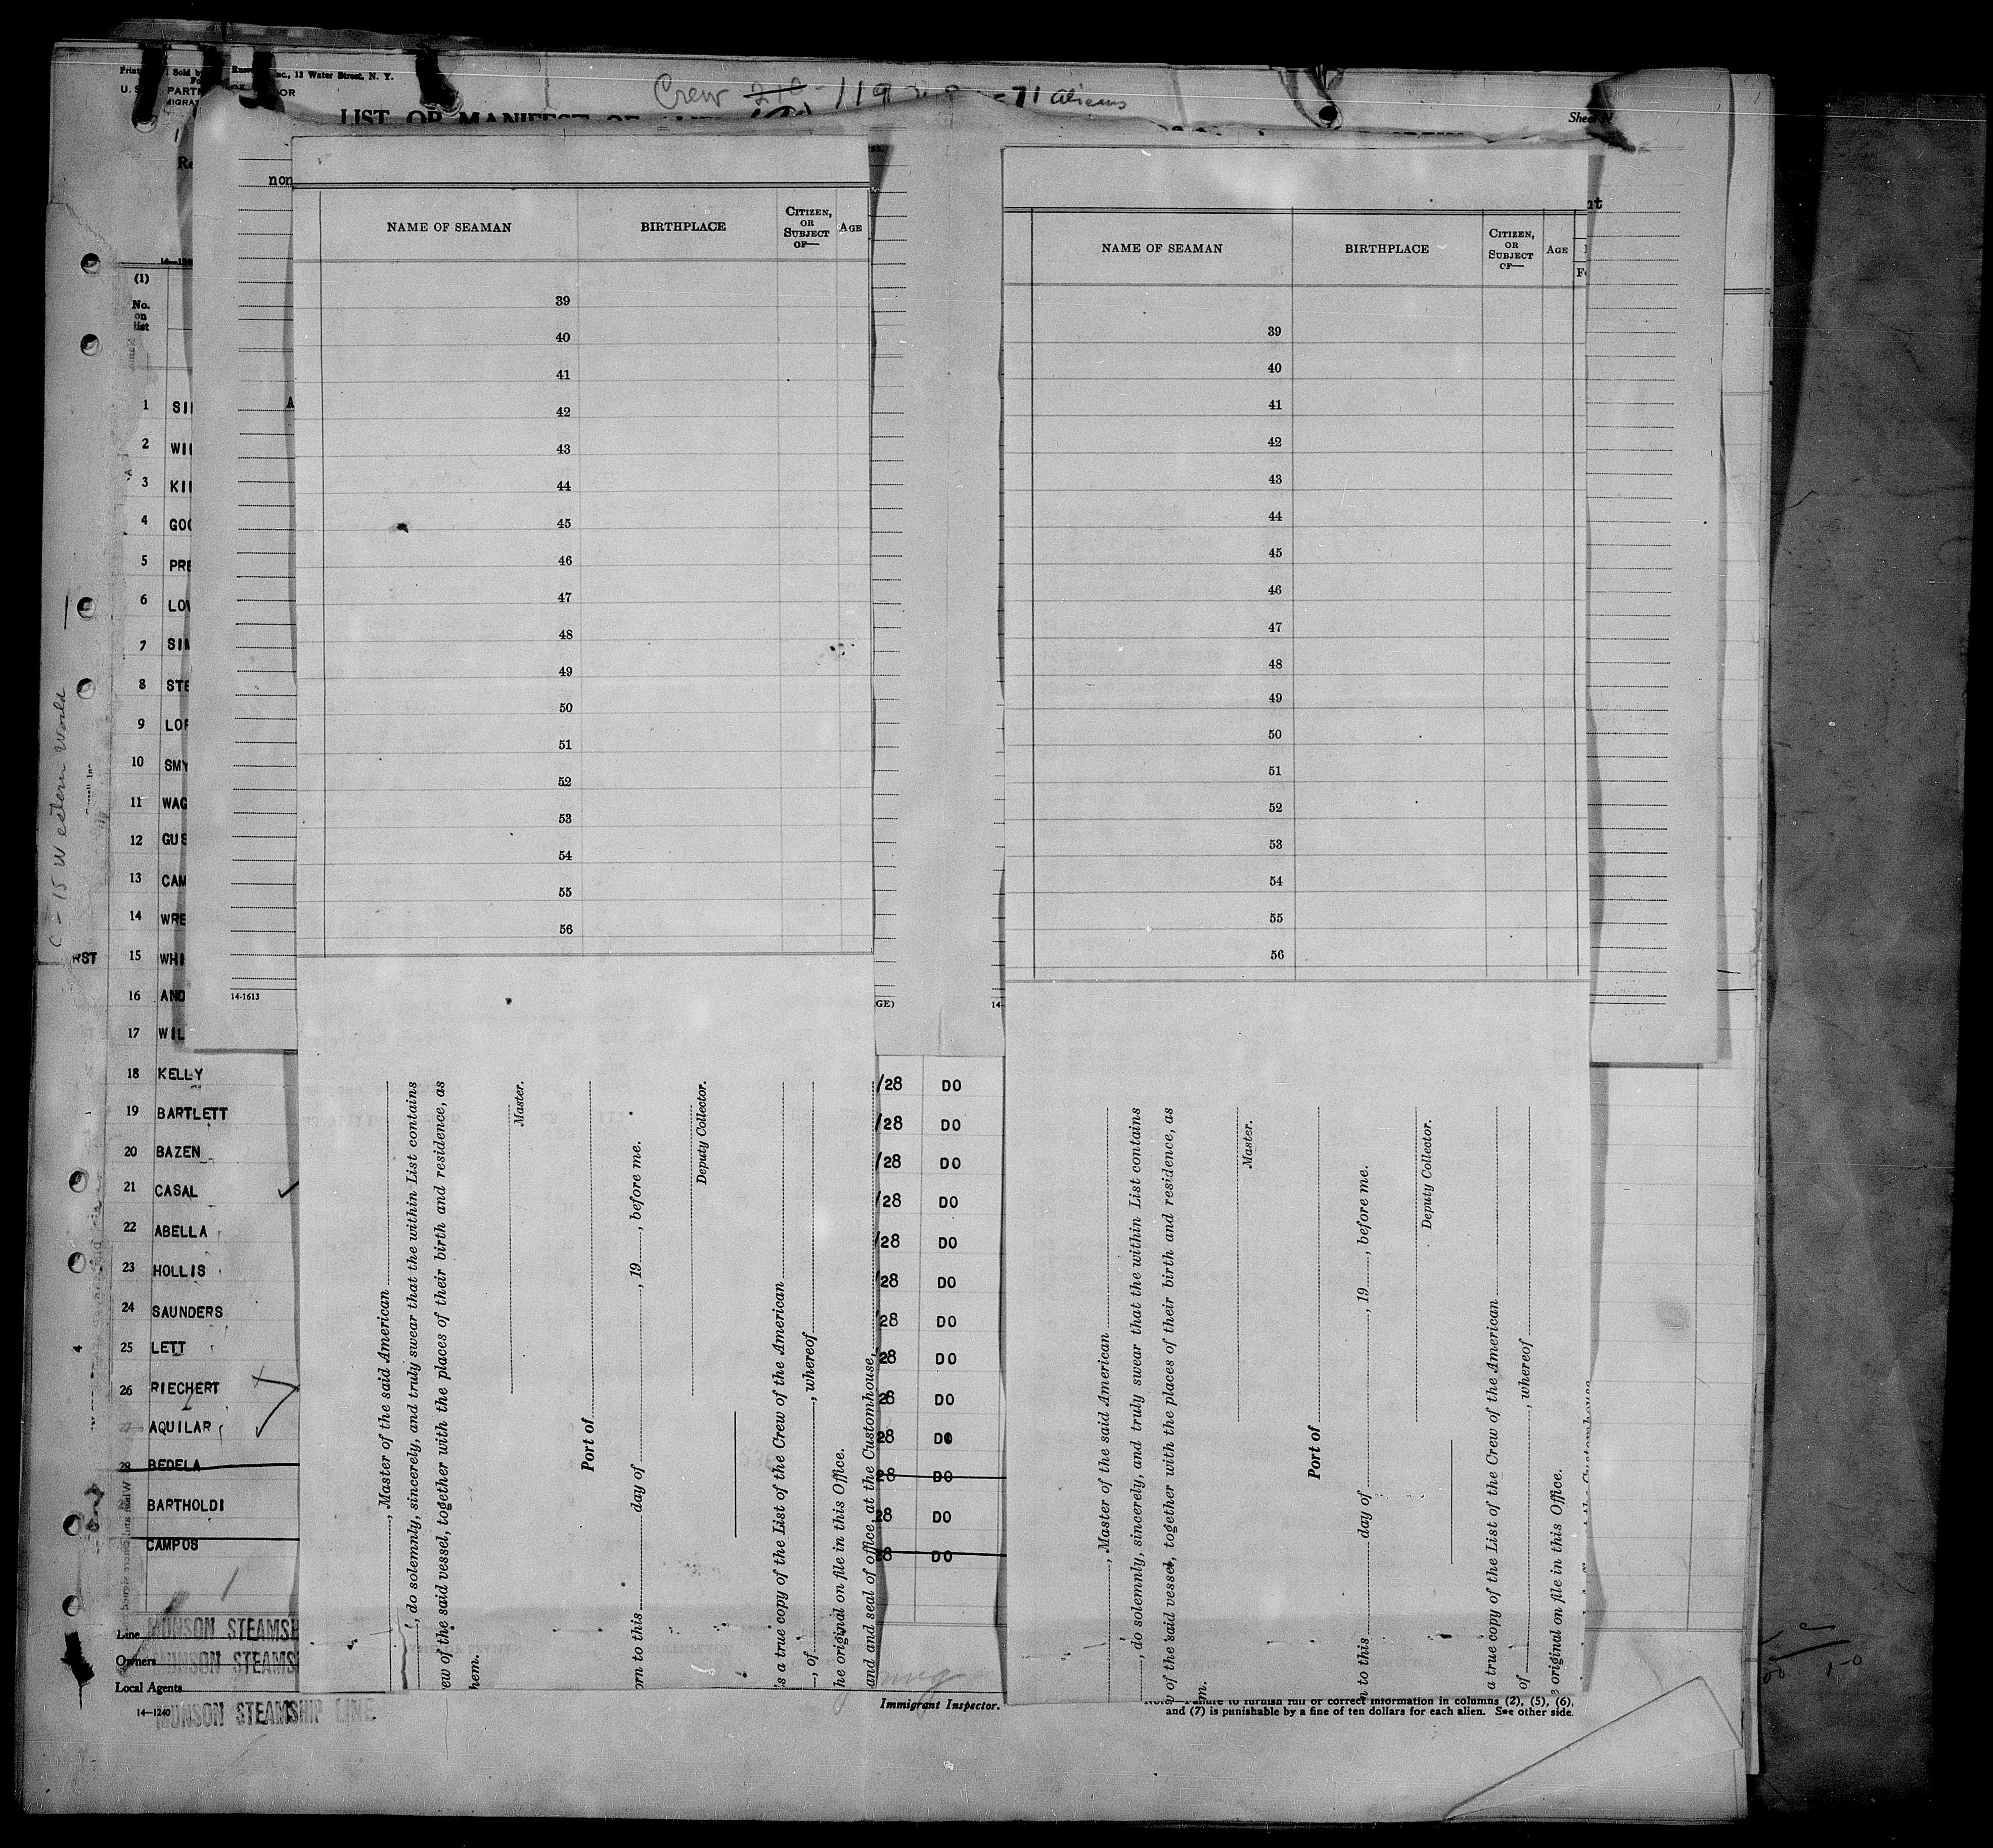 Inc., 13 Water Street, N. Y.
U. S.
Crew 119
71 aliens
LIST OR MANIFEST OF
non
(1)
No.
on
list
NAME OF SEAMAN
BIRTHPLACE
CITIZEN,
OR
SUBJECT
OF—
AGE
39
40
41
42
43
44
45
46
47
48
49
50
51
52
53
54
55
56
NAME OF SEAMAN
BIRTHPLACE
CITIZEN,
OR
SUBJECT
OF—
AGE
39
40
41
42
43
44
45
46
47
48
49
50
51
52
53
54
55
56
1 SI
2 WI
3 KI
4 GO
5 PRE
6 LO
7 SI
8 STE
9 LO
10 SMY
11 WAG
12 GUS
13 CAM
14 WRE
RST 15 WHI
16 AND
17 WIL
18 KELLY /28 DO
19 BARTLETT /28 DO
20 BAZEN /28 DO
21 CASAL /28 DO
22 ABELLA /28 DO
23 HOLLIS /28 DO
24 SAUNDERS /28 DO
4 25 LETT 28 DO
26 RIECHERT 28 DO
27 AQUILAR 28 DO
28 BEDELA 28 DO
BARTHOLDI 28 DO
CAMPOS 28 DO
14-1613
GE)
14-
15 Western World
, Master of the said American
, do solemnly, sincerely, and truly swear that the within List contains
ew of the said vessel, together with the places of their birth and residence, as
hem.
Master.
Port of
rn to this day of , 19 , before me.
Deputy Collector.
s a true copy of the List of the Crew of the American
, of , whereof
he original on file in this Office.
and and seal of office, at the Customhouse,
, Master of the said American
, do solemnly, sincerely, and truly swear that the within List contains
of the said vessel, together with the places of their birth and residence, as
m.
Master.
Port of
n to this day of , 19 , before me.
Deputy Collector.
a true copy of the List of the Crew of the American
of , whereof
original on file in this Office.
Line MUNSON STEAMSH
Owners MUNSON STEAMS
Local Agents
MUNSON STEAMSHIP LINE
14—1240
Immigrant Inspector.
Note.—Failure to furnish full or correct information in columns (2), (5), (6),
and (7) is punishable by a fine of ten dollars for each alien. See other side.